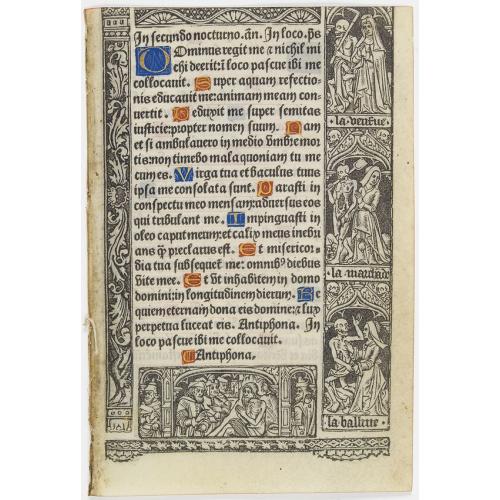 In secundo nocturno. añ. In loco. ps
Dominus regit me ⁊ nichil mi
chi deerit: ĩ loco pascue ibi me
collocauit. Super aquam refectio-
nis educauit me: animam meam con
uertit. Deduxit me super semitas
iusticie: propter nomen suum. Nam
et si ambulauero in medio vmbre mor
tis: non timebo mala quoniam tu me
cum es. Virga tua et baculus tuus
ipsa me consolata sunt. Parasti in
conspectu meo mensam: aduersus eos
qui tribulant me. Impinguasti in
oleo caput meum: et calix meus inebri
ans q̃ preclarus est. Et misericor-
dia tua subsequet̃ me: omnib⁹ diebus
vite mee. Et vt inhabitem in domo
domini: in longitudinem dierum. Re
quiem eternam dona eis domine: ⁊ lux
perpetua luceat eis. Antiphona. In
loco pascue ibi me collocauit.
Antiphona.
la veufue
la marchãde
la balliue